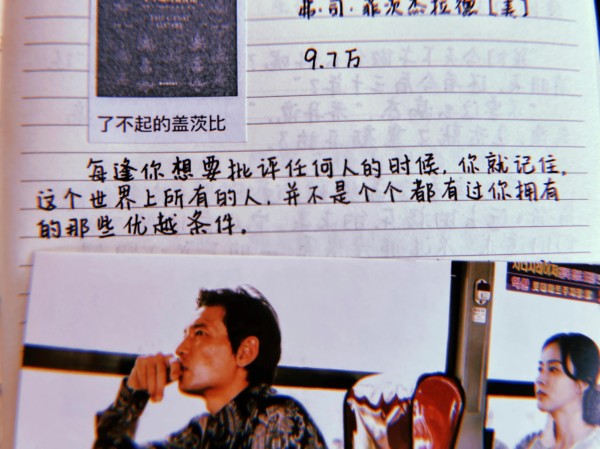 THE GREAT GATSBY
弗·司·菲茨杰拉德［美］
9.7万
了不起的盖茨比
每逢你想要批评任何人的时候，你就记住，
这个世界上所有的人，并不是个个都有过你拥有
的那些优越条件。